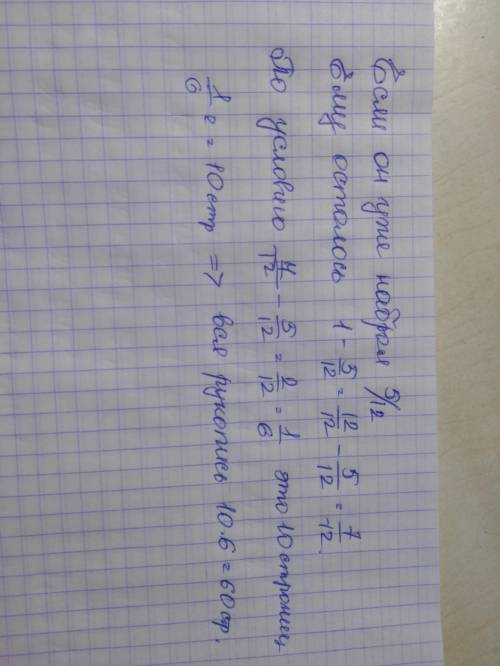 Если он уже набрал 5/12
Ему осталось 1 - 5/12 = 12/12 - 5/12 = 7/12.
По условию 7/12 - 5/12 = 2/12 = 1/6 это 10 страниц
1/6 = 10 стр => вся рукопись 10·6=60 стр.